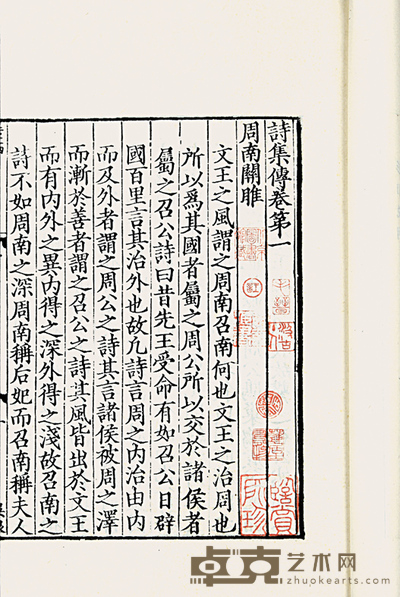 詩集傳卷第一
周南關雎
文王之風謂之周南召南何也文王之治周也
所以為其國者屬之周公所以交於諸侯者
屬之召公詩曰昔先王受命有如召公日辟
國百里言其治外也故凡詩言周之內治由內
而及外者謂之周公之詩其言諸侯被周之澤
而漸於善者謂之召公之詩其風皆出於文王
而有內外之異內得之深外得之淺故召南之
詩不如周南之深周南稱后妃而召南稱夫人
卓克艺术网
zhuokearts.com